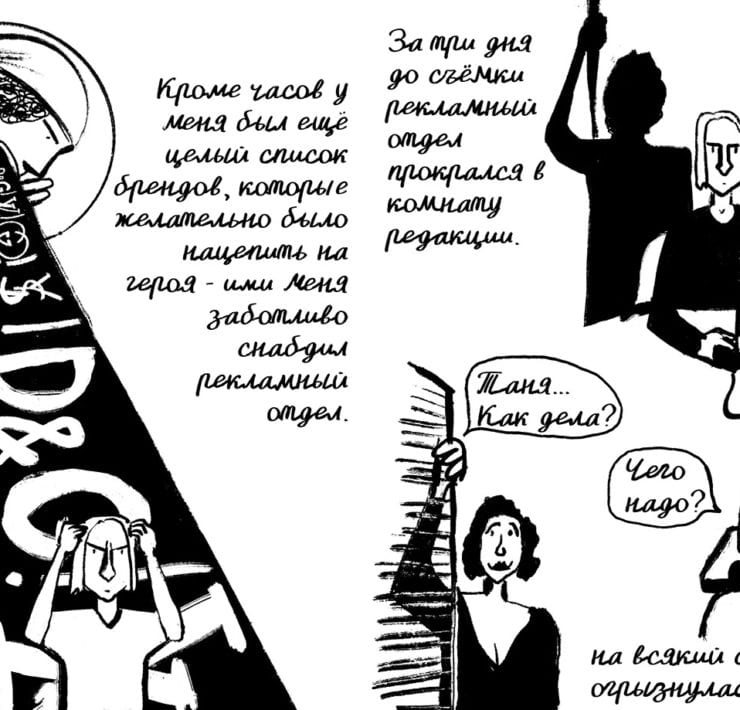 Кроме часов у
меня был ещё
целый список
брендов, которые
желательно было
нацепить на
героя - ими меня
заботливо
снабдил
рекламный
отдел.
D&G
За три дня
до съёмки
рекламный
отдел
прокрался в
комнату
редакции.
Таня...
Как дела?
Чего
надо?
на всякий